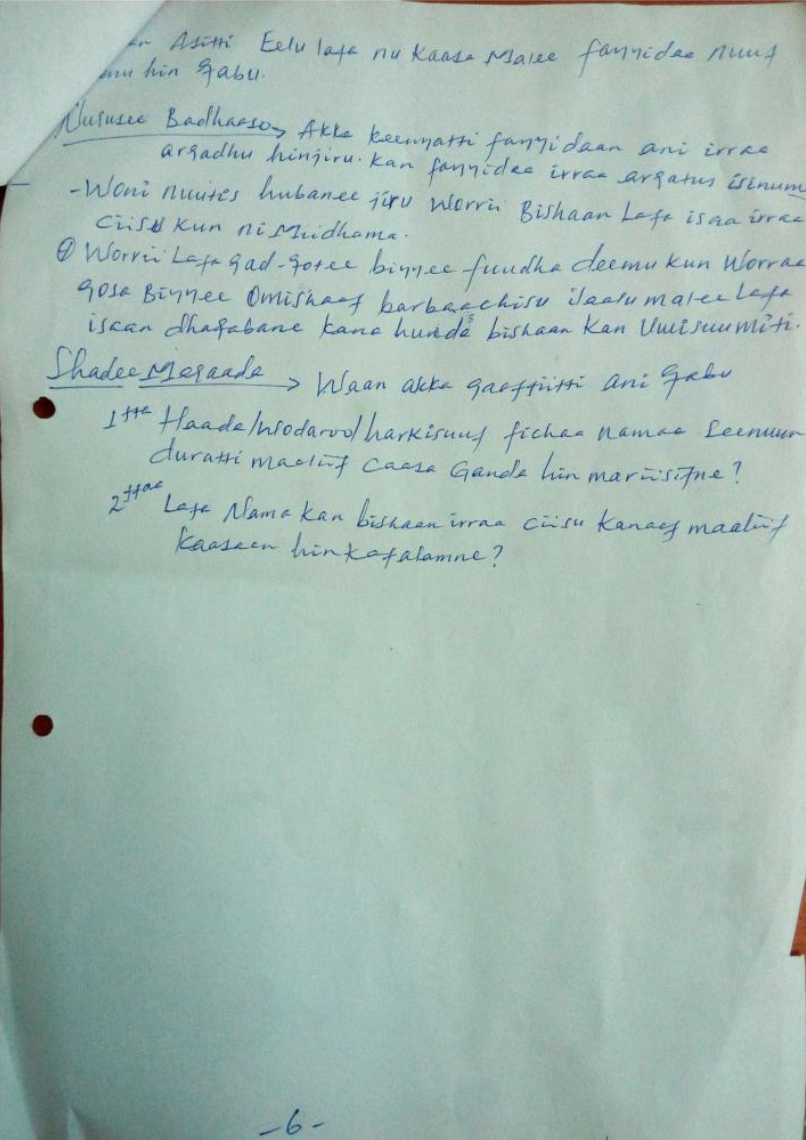 Asitti Eelu lafa nu kaasa Malee fayyidaa nuuf
hin qabu.
Nuusee Badhaaso → Akka keenyatti fayyidaan ani irraa
argadhu hinjiru. Kan fayyidaa irraa argatus isinum
- Woni nuutis hubanee jiru Worrii Bishaan Lafa isaa irraa
Ciisu kun ni Miidhama.
Worrii Lafa gad-gotee biyyee fuudha deemu kun Worraa
gosa Biyyee Omishaaf barbaachisu ilaalu malee Lafa
isaan dhaqabane kana hunda bishaan kan Uwisuu miti.
Shadee Magaada → Waan akka gaaffiitti ani qabu
1ffa Haada/Wodaroo/harkisuuf fichaa namaa seenuun
duratti maaliif Caasa Ganda hin mariisifne?
2ffaa Lafa Nama kan bishaan irraa ciisu kanaaf maaliif
kaasaan hin kafalamne?
-6-